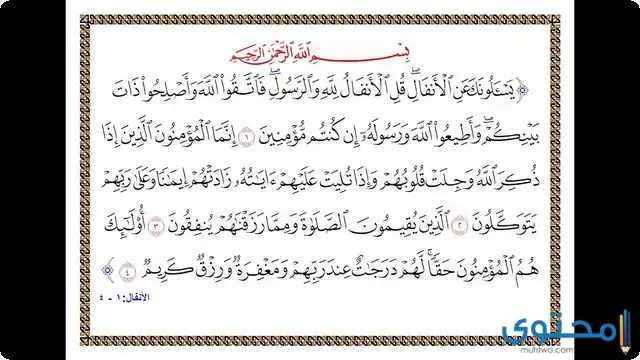 بِسْمِ اللَّهِ الرَّحْمَٰنِ الرَّحِيمِ
﴿ يَسْـَٔلُونَكَ عَنِ الْأَنْفَالِ ۖ قُلِ الْأَنْفَالُ لِلَّهِ وَالرَّسُولِ ۖ فَاتَّقُوا اللَّهَ وَأَصْلِحُوا ذَاتَ
بَيْنِكُمْ ۖ وَأَطِيعُوا اللَّهَ وَرَسُولَهُ إِنْ كُنْتُمْ مُؤْمِنِينَ ۝١ إِنَّمَا الْمُؤْمِنُونَ الَّذِينَ إِذَا
ذُكِرَ اللَّهُ وَجِلَتْ قُلُوبُهُمْ وَإِذَا تُلِيَتْ عَلَيْهِمْ ءَايَاتُهُ زَادَتْهُمْ إِيمَانًا وَعَلَىٰ رَبِّهِمْ
يَتَوَكَّلُونَ ۝٢ الَّذِينَ يُقِيمُونَ الصَّلَاةَ وَمِمَّا رَزَقْنَاهُمْ يُنْفِقُونَ ۝٣ أُولَٰئِكَ
هُمُ الْمُؤْمِنُونَ حَقًّا ۚ لَهُمْ دَرَجَاتٌ عِنْدَ رَبِّهِمْ وَمَغْفِرَةٌ وَرِزْقٌ كَرِيمٌ ۝٤ ﴾
الأنفال: ١ - ٤
محتوى
muhtwa.com